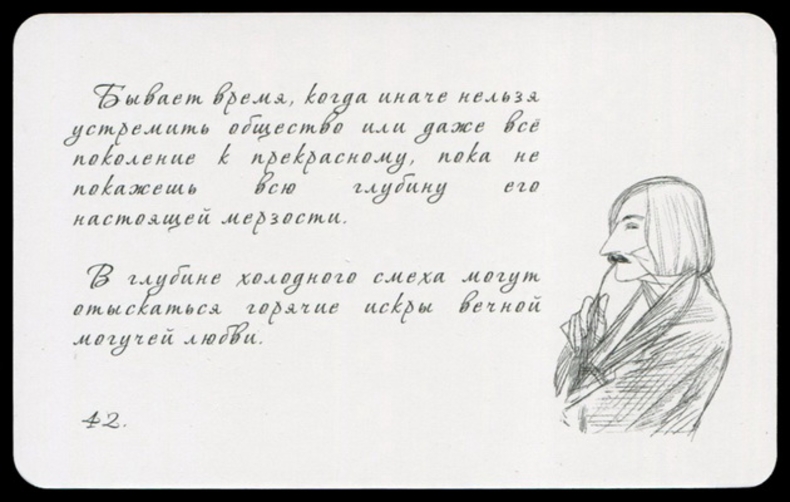 Бывает время, когда иначе нельзя
устремить общество или даже всё
поколение к прекрасному, пока не
покажешь всю глубину его
настоящей мерзости.
В глубине холодного смеха могут
отыскаться горячие искры вечной
могучей любви.
42.